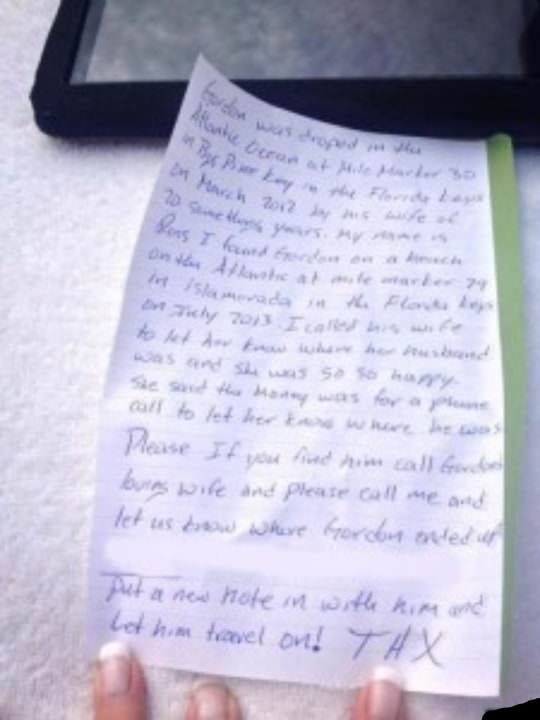 Gordon was droped in the
Atlantic Ocean at Mile Marker 30
in Big Pine Key in the Florida Keys
on March 2012 by his wife of
20 somethings years. My name is
I found Gordon on a beach
on the Atlantic at mile marker 79
in islamorada in the Florida keys
on July 2013. I called his wife
to let her know where her husband
was and she was so so happy.
she said the money was for a phone
call to let her know where he was
Please If you find him call Gordon
wife and please call me and
let us know where Gordon ended up
Put a new note in with him and
Let him travel on! THX